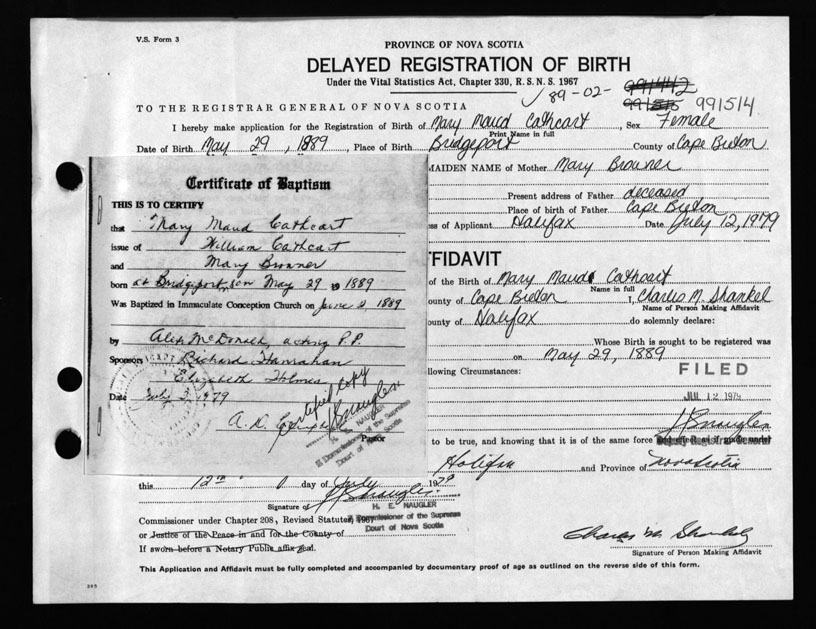 V.S. Form 3
PROVINCE OF NOVA SCOTIA
DELAYED REGISTRATION OF BIRTH
Under the Vital Statistics Act, Chapter 330, R.S.N.S. 1967
89-02- 991442
991514
TO THE REGISTRAR GENERAL OF NOVA SCOTIA
I hereby make application for the Registration of Birth of Mary Maud Cathcart, Sex Female
Print Name in full
Date of Birth May 29, 1889 Place of Birth Bridgeport County of Cape Breton
MAIDEN NAME of Mother Mary Browner
Present address of Father deceased
Place of birth of Father Cape Breton
ss of Applicant Halifax Date July 12, 1979
Certificate of Baptism
THIS IS TO CERTIFY
that Mary Maud Cathcart
issue of William Cathcart
and Mary Browner
born at Bridgeport, on May 29 19 1889
Was Baptized in Immaculate Conception Church on June 2, 1889
by Alex McDonald, acting P.P.
Sponsors Richard Hanrahan
Elizabeth Holmes
Date July 3, 1979
Certified Copy
H. E. NAUGLER
A Commissioner of the Supreme
Court of Nova Scotia
Pastor
FFIDAVIT
of the Birth of Mary Maud Cathcart
Name in full
ounty of Cape Breton I, Charles M. Shankel
Name of Person Making Affidavit
ounty of Halifax do solemnly declare:
Whose Birth is sought to be registered was
on May 29, 1889
llowing Circumstances:
FILED
JUL 12 1979
to be true, and knowing that it is of the same force
Halifax and Province of Nova Scotia
this 12th day of July 1979
Signature of
H. E. NAUGLER
A Commissioner of the Supreme
Court of Nova Scotia
Commissioner under Chapter 208, Revised Statutes, 1967
or Justice of the Peace in and for the County of
If sworn before a Notary Public affix Seal.
Charles M. Shankel
Signature of Person Making Affidavit
This Application and Affidavit must be fully completed and accompanied by documentary proof of age as outlined on the reverse side of this form.